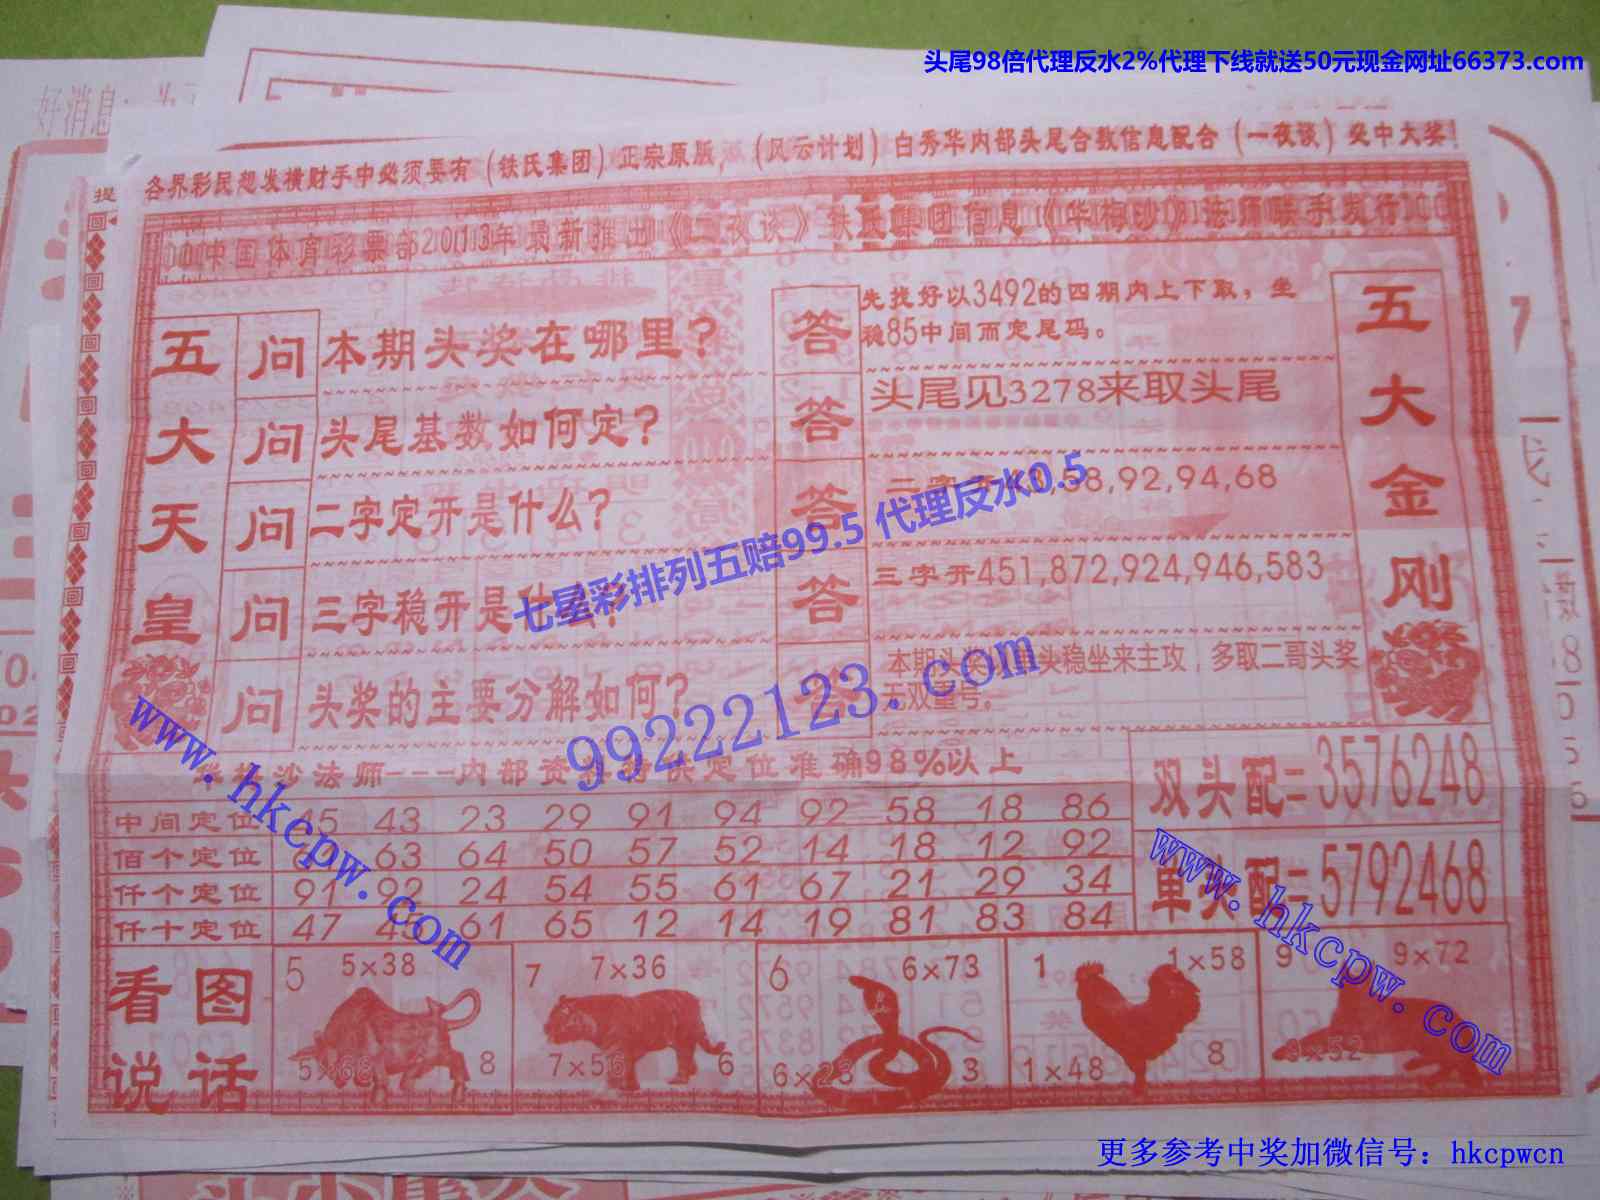 头尾98倍代理反水2%代理下线就送50元现金网址66373.com
好消息
各界彩民想发横财手中必须要有（铁氏集团）正宗原版，（风云计划）白秀华内部头尾合数信息配合（一夜谈）必中大奖！
提
中国体育彩票部2013年最新推出《一夜谈》铁氏集团信息《华梅沙》法师联手发行
五大天皇
问 本期头奖在哪里？
问 头尾基数如何定？
问 二字定开是什么？
问 三字稳开是什么？
问 头奖的主要分解如何？
答 先找好以3492的四期内上下取，坐
稳85中间而定尾码。
答 头尾见3278来取头尾
答 二字开43,58,92,94,68
答 三字开451,872,924,946,583
答 本期头奖 单头稳坐来主攻，多取二哥头奖
无双重号。
五大金刚
七星彩排列五赔99.5 代理反水0.5
99222123.com
www.hkcpw.com
沙法师---内部资料 定位准确98%以上
中间定位 45 43 23 29 91 94 92 58 18 86
佰个定位 63 64 50 57 52 14 18 12 92
仟个定位 91 92 24 54 55 61 67 21 29 34
仟十定位 47 45 61 65 12 14 19 81 83 84
双头配=3576248
单头配=5792468
www.hkcpw.com
看图说话
5 5×38 5×68 8
7 7×36 7×56 6
6 6×73 6×23 3
1 1×58 1×48 8
9 9×72 9×52
更多参考中奖加微信号：hkcpwcn